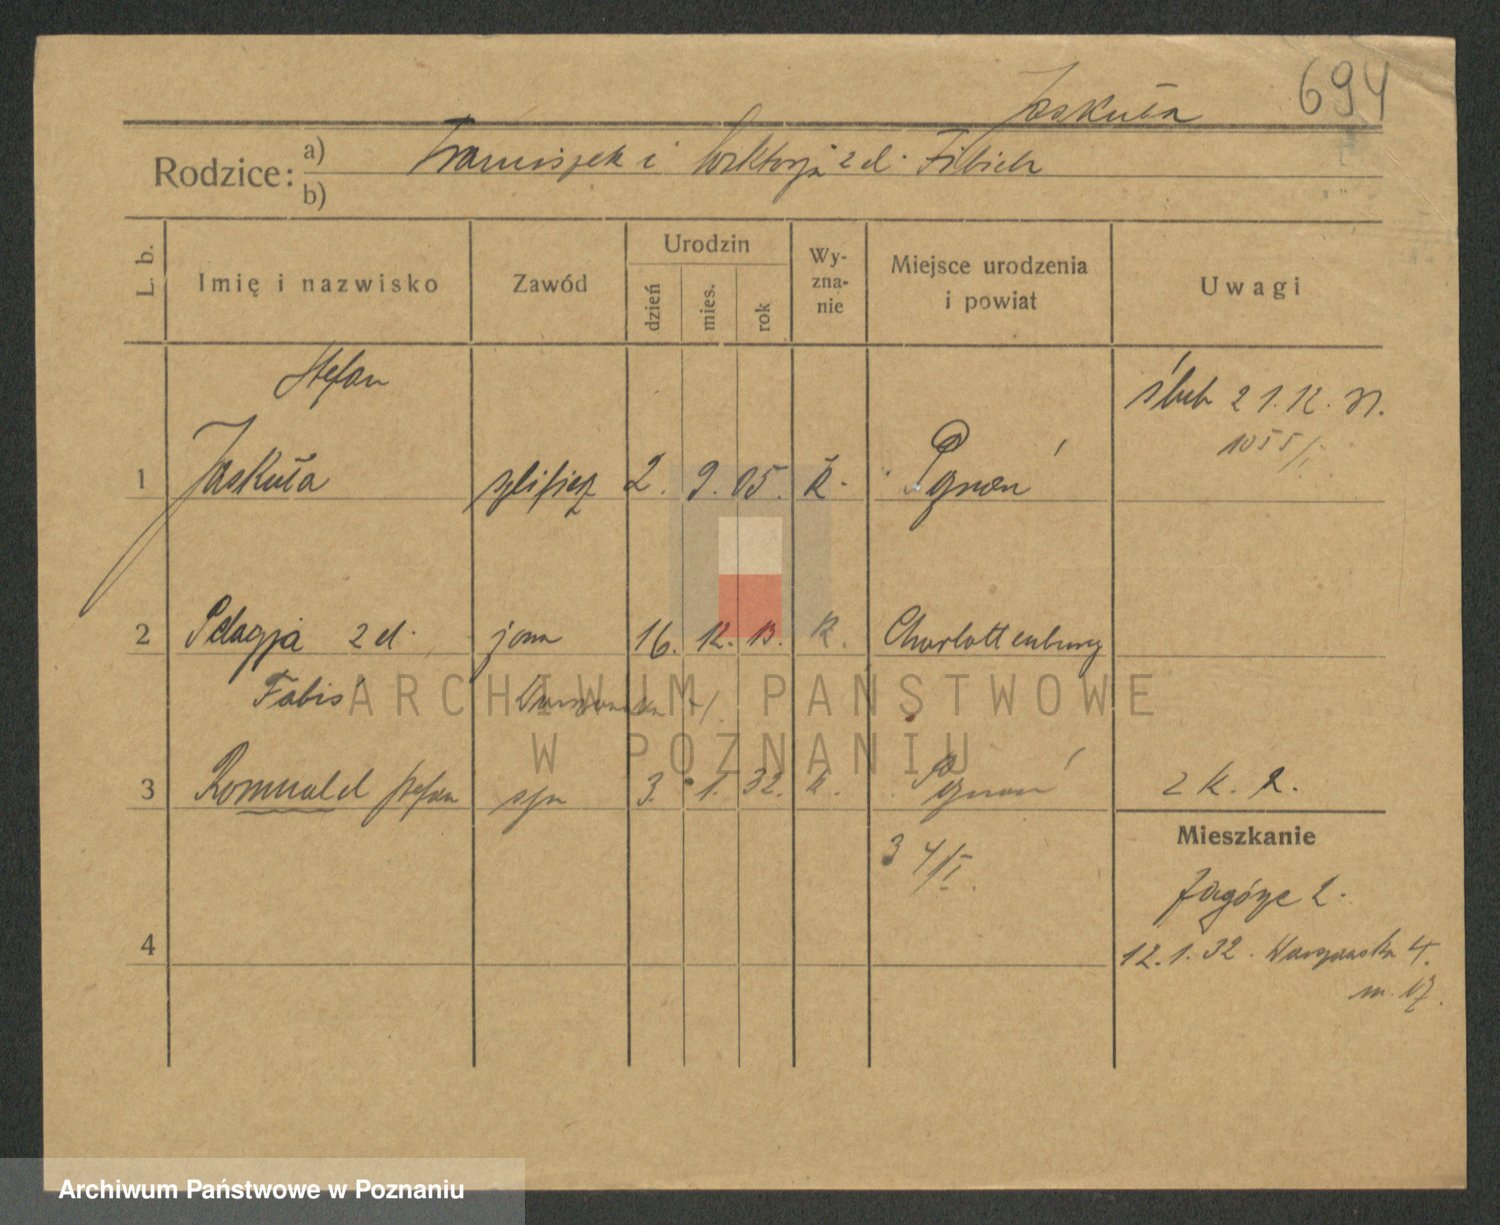 694
Jaskuła
Rodzice: a) Franciszek i Wiktorja z d. Fibich
b)
L. b.
Imię i nazwisko
Zawód
Urodzin
dzień
mies.
rok
Wy-
zna-
nie
Miejsce urodzenia
i powiat
Uwagi
Stefan
ślub 21.12.31.
1055/I
1 Jaskuła szlifierz 2. 9. 05. k. Poznań
2 Pelagja z d. żona 16. 12. 13. k. Charlottenburg
Fabiś
3 Romuald Stefan syn 3. 1. 32. k. Poznań
z k. 2.
34/II.
Mieszkanie
Zagórze 2.
4
12.1.32. Warszawska 4.
m. 17.
ARCHIWUM PAŃSTWOWE
W POZNANIU
Archiwum Państwowe w Poznaniu